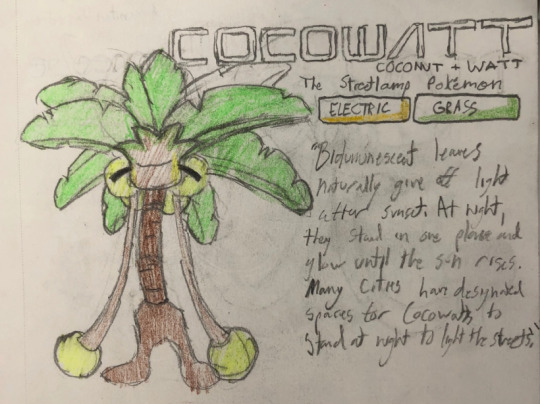 COCOWATT
COCONUT + WATT
The Streetlamp Pokémon
ELECTRIC GRASS
"Bioluminescent leaves
naturally give off light
after sunset. At night,
they stand in one place and
glow until the sun rises.
Many cities have designated
spaces for Cocowatts to
stand at night to light the streets."